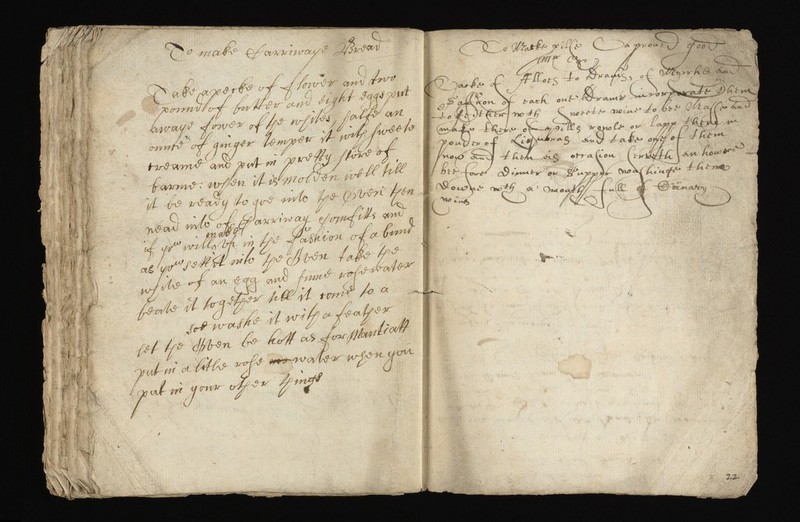 To make Carriwaye Bread
Take a pecke of flower and two
pound of butter and eight eggs put
awaye fower of the whites halfe an
ounce of ginger temper it with sweete
creame and put in pretty store of
barme: when it is molden well till
it be ready to goe into the Oven then
nead into it Carriway Comfitts and
if you will make it in the fashion of a band
as you sett it into the Oven take the
white of an egg and some rosewater
beate it together till it come to a
soe washe it with a feather
let the Oven be hott as for Manchatt
put in a litle rose water when you
put in your other things
To Make pills Approved good
Take of Alloes to drams of Myrrhe and
Saffron of each one dram incorporate them
together with sweete wine to bee Masse and
make there of pills rowle or lapp them in
pouder of Liquoras and take one of them
now and then as occasion serveth an hower
before dinner or supper washinge them
downe with a mouth full of Canary
wine
22